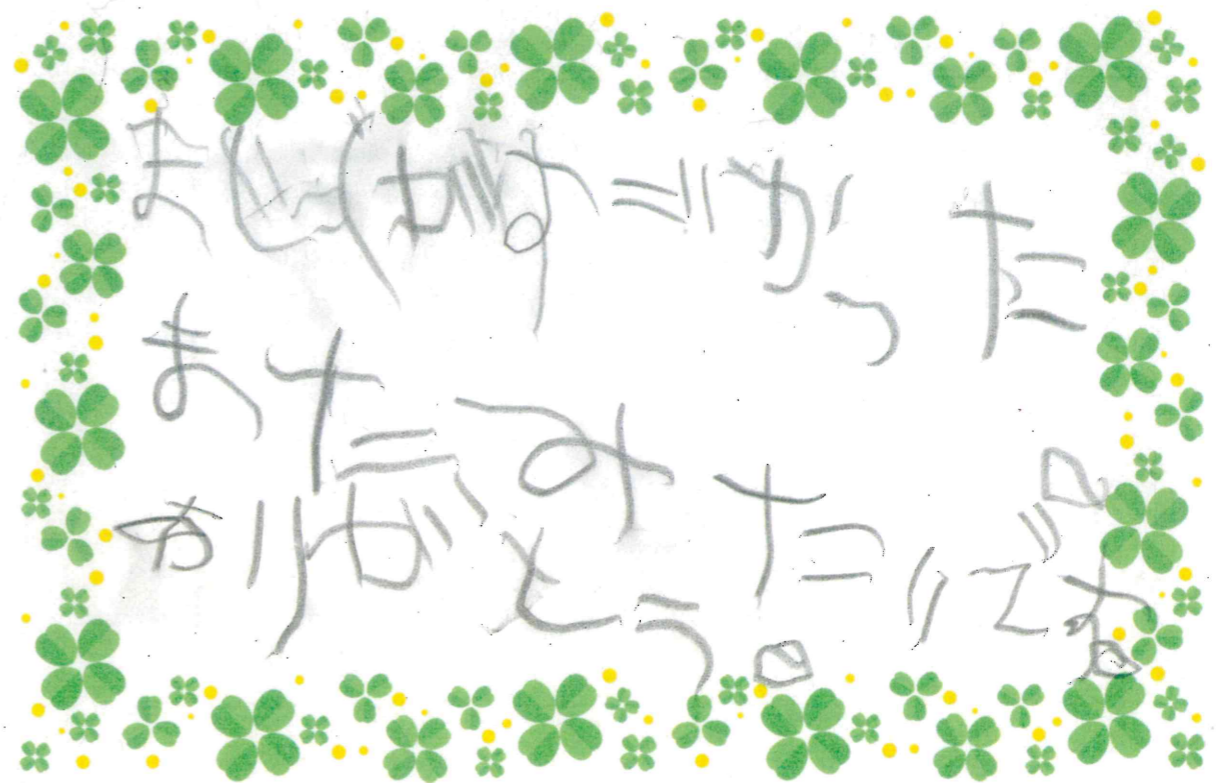 まじっくがすごかった
またみたいです。
ありがとう。